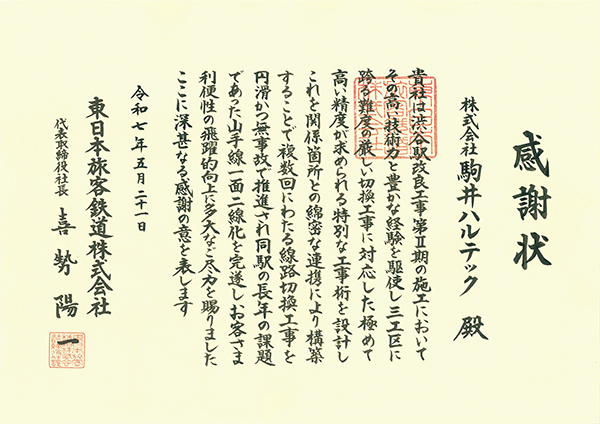 感謝状
株式会社 駒井ハルテック 殿
貴社は渋谷駅改良工事第Ⅱ期の施工において
その高い技術力と豊かな経験を駆使し三工区に
跨る難度の厳しい切換工事に対応した極めて
高い精度が求められる特別な工事術を設計し
これを関係箇所との綿密な連携により構築
することで複数回にわたる線路切換工事を
円滑かつ無事故で推進され同駅の長年の課題
であった山手線一面二線化を完遂しお客さま
利便性の飛躍的向上に多大なご尽力を賜りました
ここに深甚なる感謝の意を表します
令和七年五月二十一日
東日本旅客鉄道株式会社
代表取締役社長 喜㔟陽一